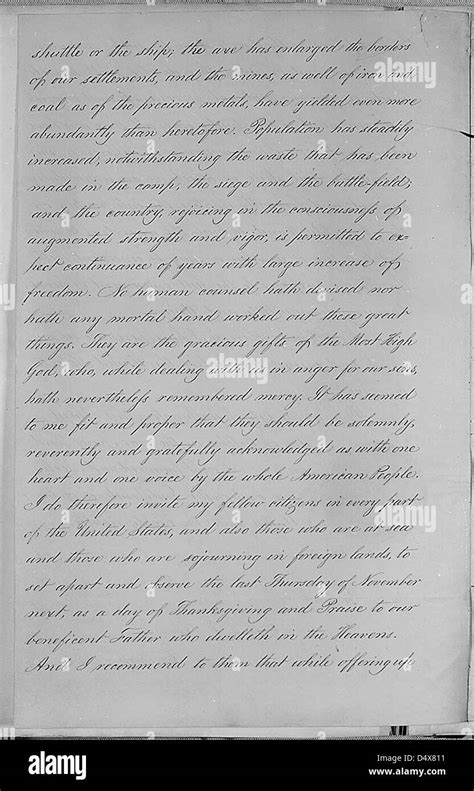 shuttle or the ship; the axe has enlarged the borders
of our settlements, and the mines, as well of iron and
coal as of the precious metals, have yielded even more
abundantly than heretofore. Population has steadily
increased, notwithstanding the waste that has been
made in the camp, the siege and the battle-field;
and the country, rejoicing in the consciousness of
augmented strength and vigor, is permitted to ex-
pect continuance of years with large increase of
freedom. No human counsel hath devised nor
hath any mortal hand worked out these great
things. They are the gracious gifts of the Most High
God, who, while dealing with us in anger for our sins,
hath nevertheless remembered mercy. It has seemed
to me fit and proper that they should be solemnly,
reverently and gratefully acknowledged as with one
heart and one voice by the whole American People.
I do therefore invite my fellow citizens in every part
of the United States, and also those who are at sea
and those who are sojourning in foreign lands, to
set apart and observe the last Thursday of November
next, as a day of Thanksgiving and Praise to our
beneficent Father who dwelleth in the Heavens.
And I recommend to them that while offering up
alamy
alamy
Image ID: D4X811
www.alamy.com